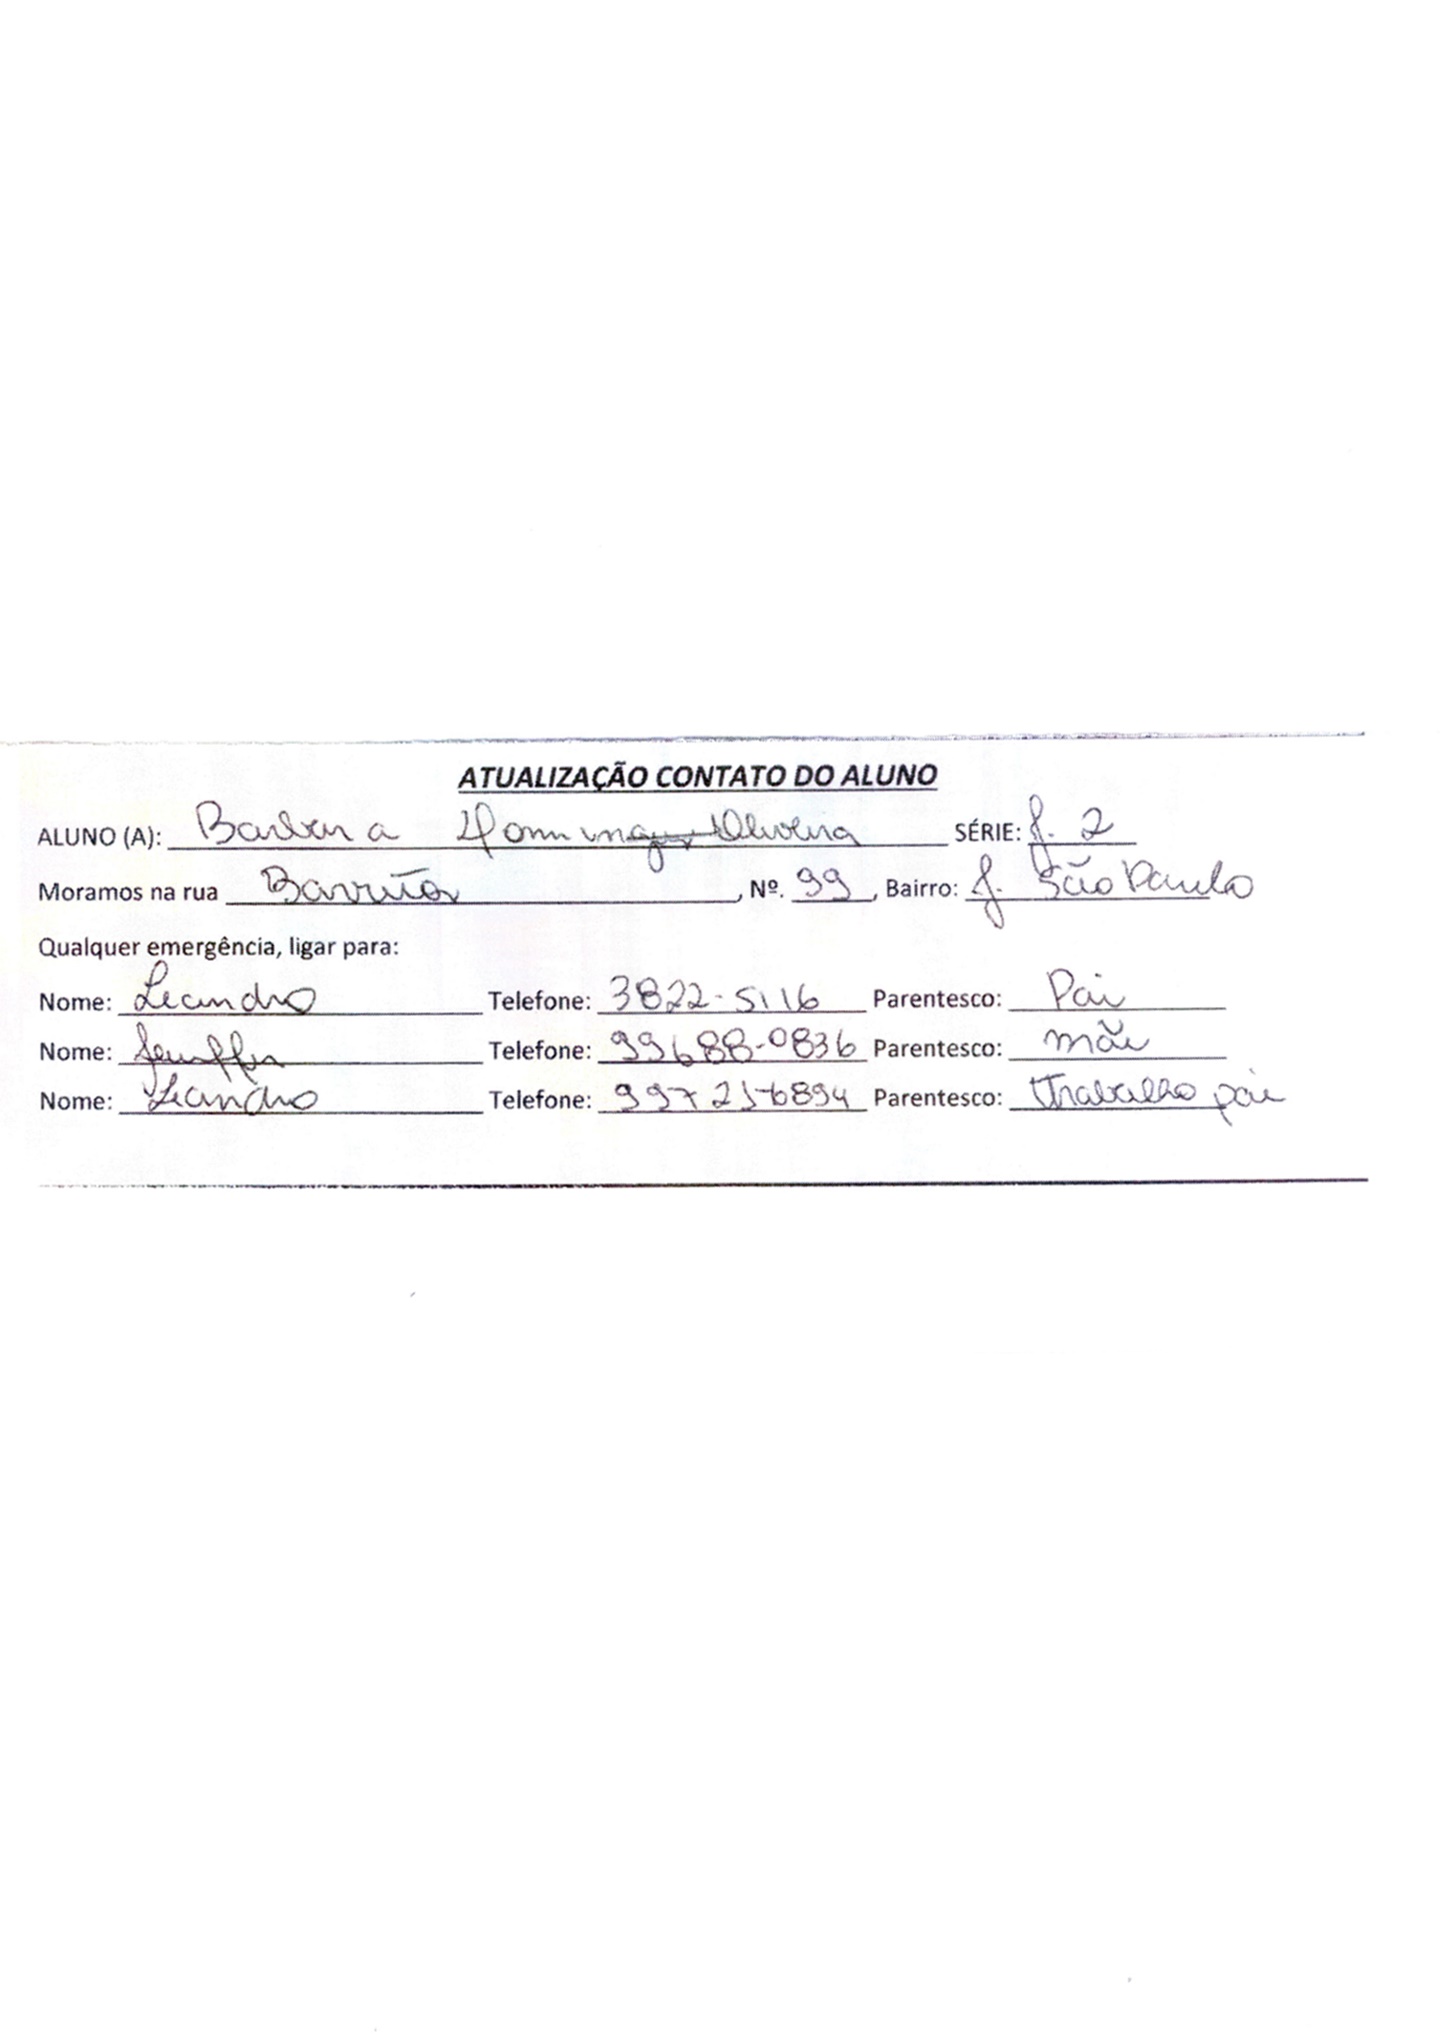 ATUALIZAÇÃO CONTATO DO ALUNO
ALUNO (A): Barbara Domingues Oliveira SÉRIE: J. 2
Moramos na rua , Nº. 99, Bairro: J. São Paulo
Qualquer emergência, ligar para:
Nome: Leandro Telefone: 3822-5116 Parentesco: Pai
Nome: Telefone: 99688-0836 Parentesco: mãe
Nome: Leandro Telefone: Parentesco: Trabalho pai